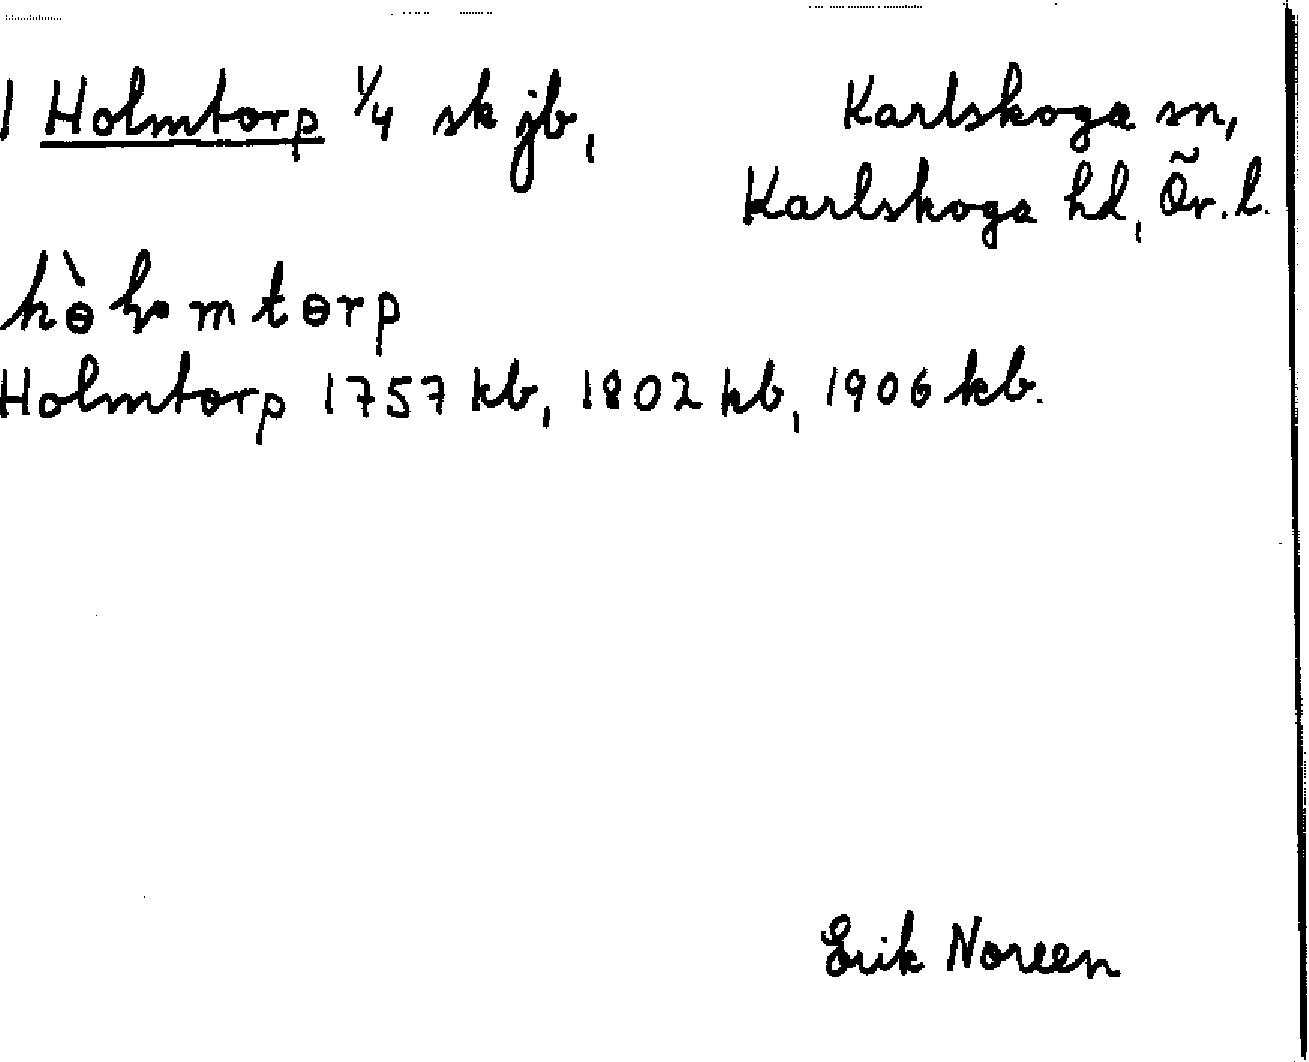 1 Holmtorp 1/4 sk jb,
Karlskoga sn,
Karlskoga hd, Ör. l.
Holmtorp 1757 kb, 1802 kb, 1906 kb.
Erik Noreen